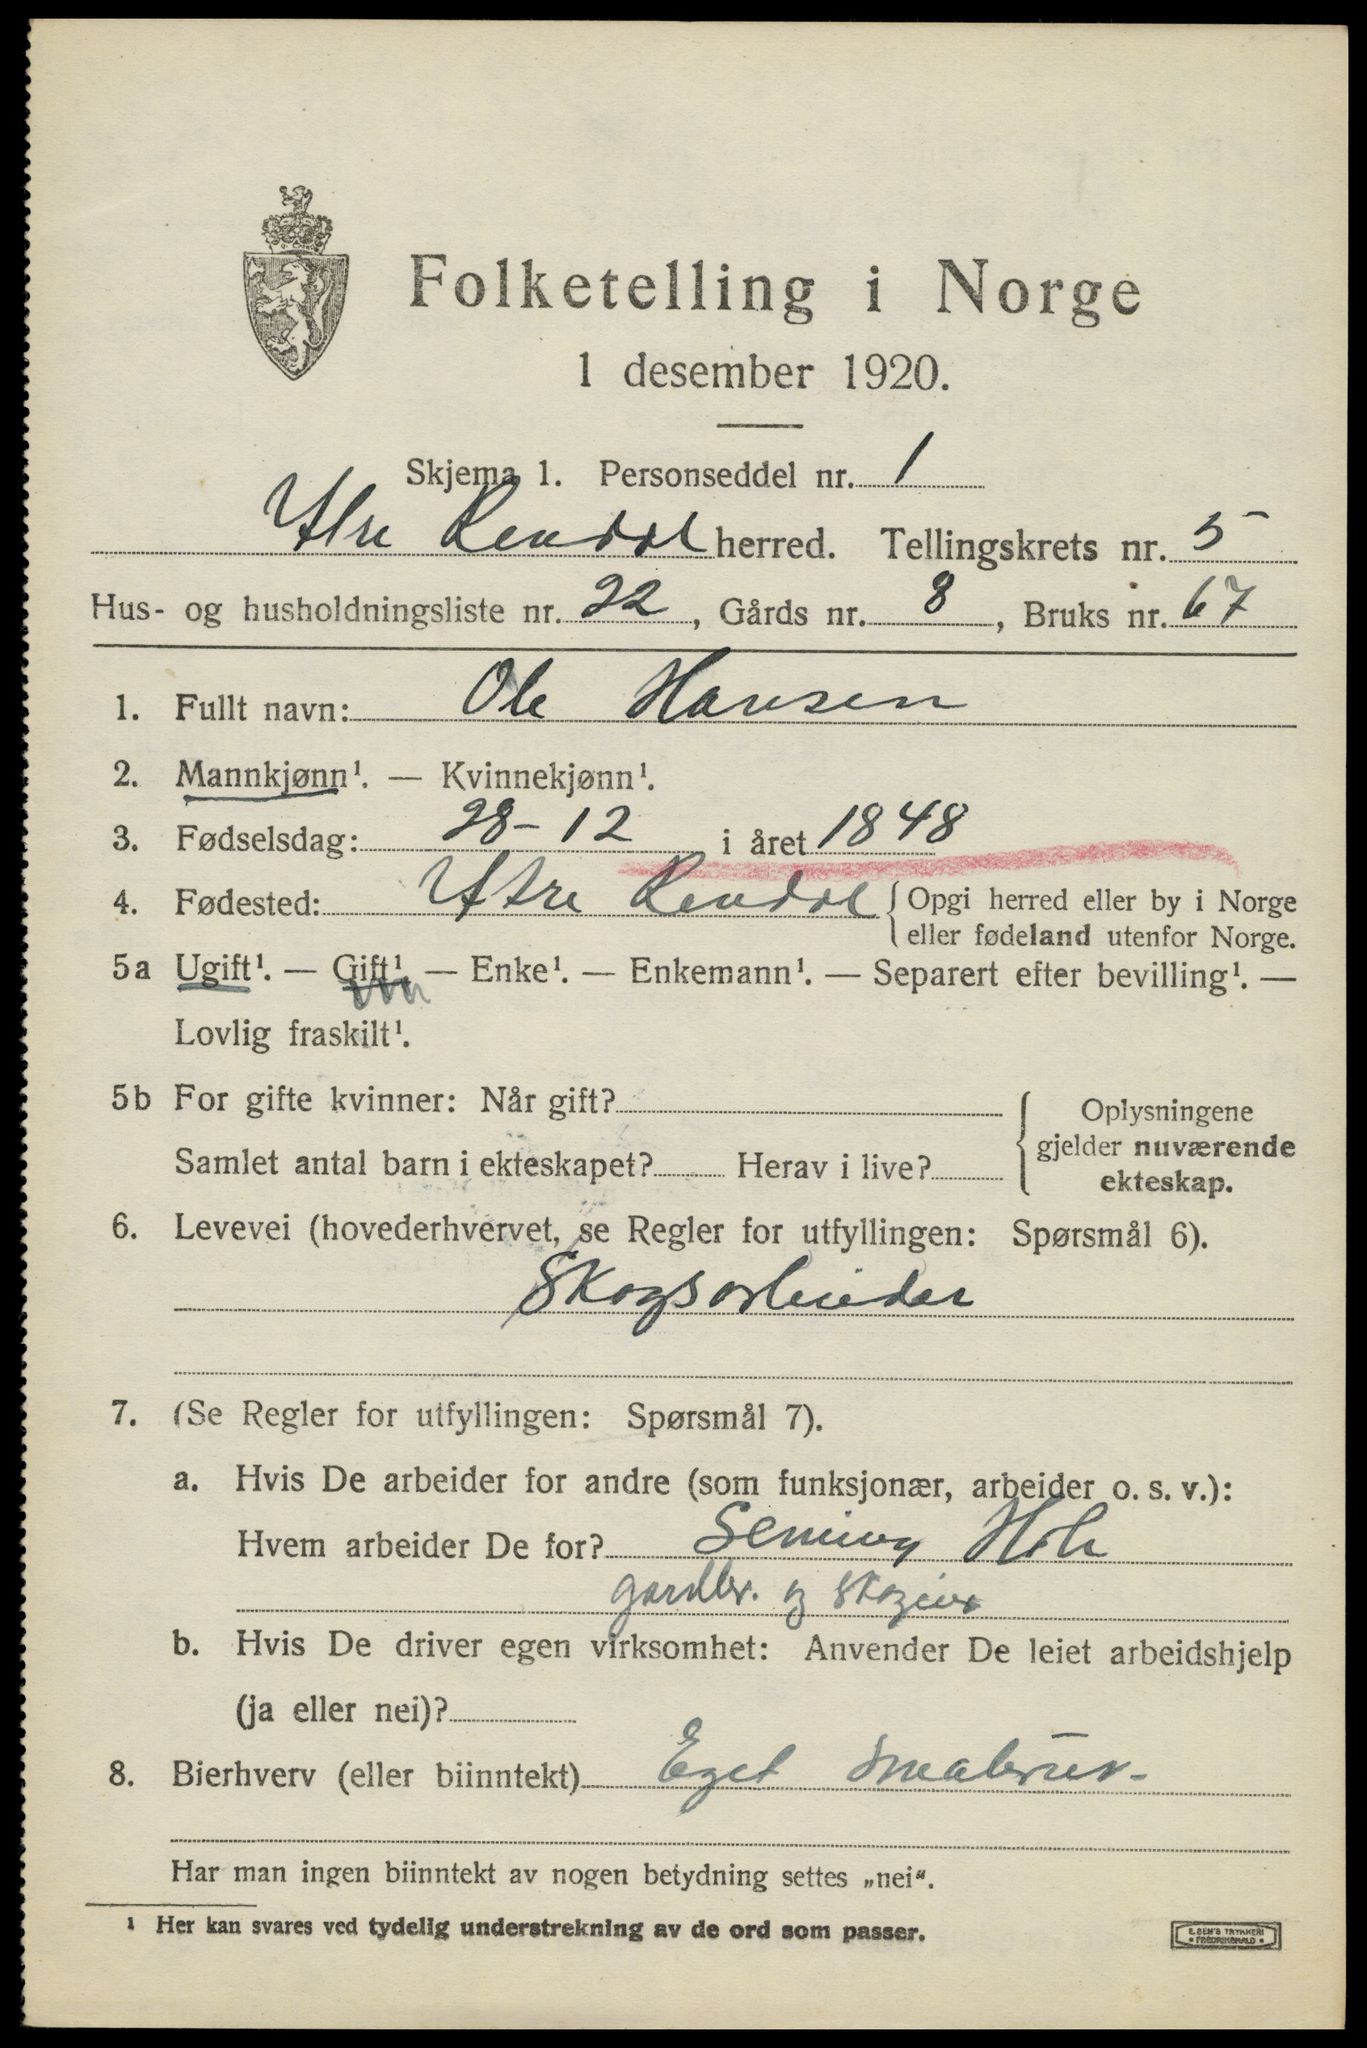 Folketelling i Norge
1 desember 1920.
Skjema 1. Personseddel nr. 1
Ytre Rendal herred. Tellingskrets nr. 5
Hus- og husholdningsliste nr. 22, Gårds nr. 8, Bruks nr. 67
1. Fullt navn: Ole Hansen
2. Mannkjønn¹. — Kvinnekjønn¹.
3. Fødselsdag: 28-12 i året 1848
4. Fødested: Ytre Rendal { Opgi herred eller by i Norge
eller fødeland utenfor Norge.
5a Ugift¹. — Gift¹. — Enke¹. — Enkemann¹. — Separert efter bevilling¹. —
Lovlig fraskilt¹.
5b For gifte kvinner: Når gift? { Oplysningene
gjelder nuværende
Samlet antal barn i ekteskapet? Herav i live?
ekteskap.
6. Levevei (hovederhvervet, se Regler for utfyllingen: Spørsmål 6).
Skogsarbeider
7. (Se Regler for utfyllingen: Spørsmål 7).
a. Hvis De arbeider for andre (som funksjonær, arbeider o. s. v.):
Hvem arbeider De for? Seming
gardbr. og skogeier
b. Hvis De driver egen virksomhet: Anvender De leiet arbeidshjelp
(ja eller nei)?
8. Bierhverv (eller biinntekt) Eget smabruk-
Har man ingen biinntekt av nogen betydning settes „nei“.
¹ Her kan svares ved tydelig understrekning av de ord som passer.
E. SEM'S TRYKKERI
• FREDRIKSHALD •